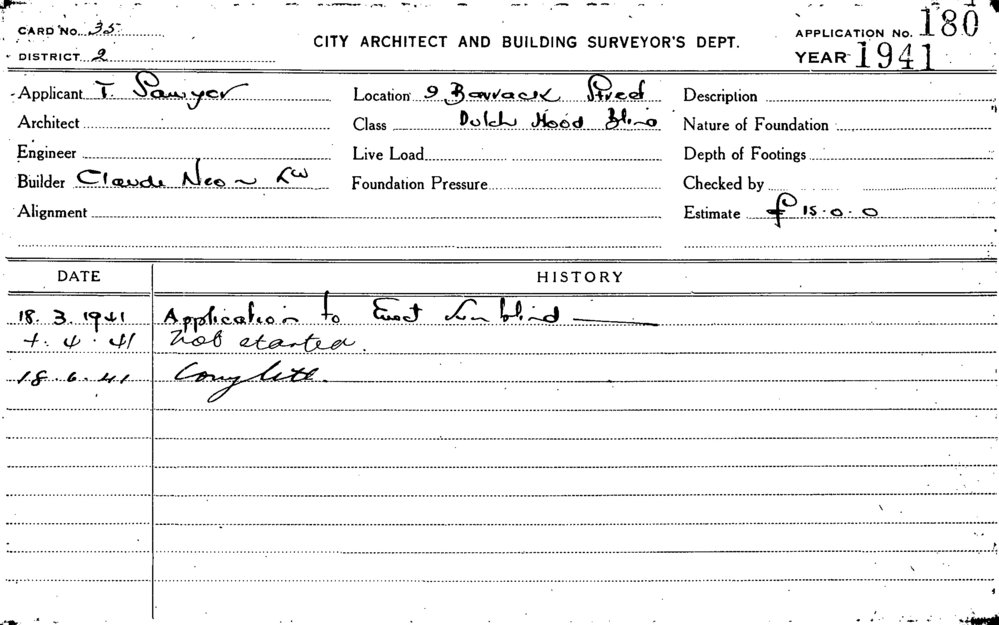 CARD No. 35
DISTRICT 2
CITY ARCHITECT AND BUILDING SURVEYOR'S DEPT.
APPLICATION No. 180
YEAR 1941
Applicant T. Sawyer Location 9 Barrack Street Description
Architect Class Dutch Hood Blind Nature of Foundation
Engineer Live Load Depth of Footings
Builder Claude Neon Foundation Pressure Checked by
Alignment Estimate £15.0.0
DATE HISTORY
18. 3. 1941 Application to Erect blind
4. 41 Not started.
18. 6. 41 Complete.